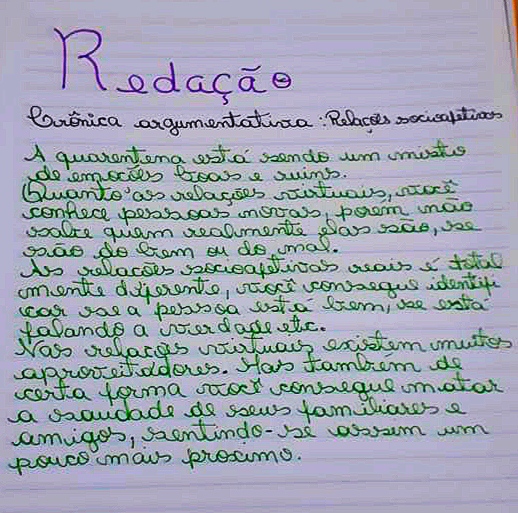 Redação
Crônica argumentativa: Relações socioafetivas
A quarentena está sendo um misto
de emoções boas e ruins.
Quanto as relações virtuais, você
conhece pessoas novas, porém não
sabe quem realmente elas são, se
são do bem ou do mal.
As relações socioafetivas reais é total
mente diferente, você consegue identifi
car se a pessoa está bem, se está
falando a verdade etc.
Nas relações virtuais existem muitos
aproveitadores. Mas também de
certa forma você consegue matar
a saudade de seus familiares e
amigos, sentindo-se assim um
pouco mais proximo.